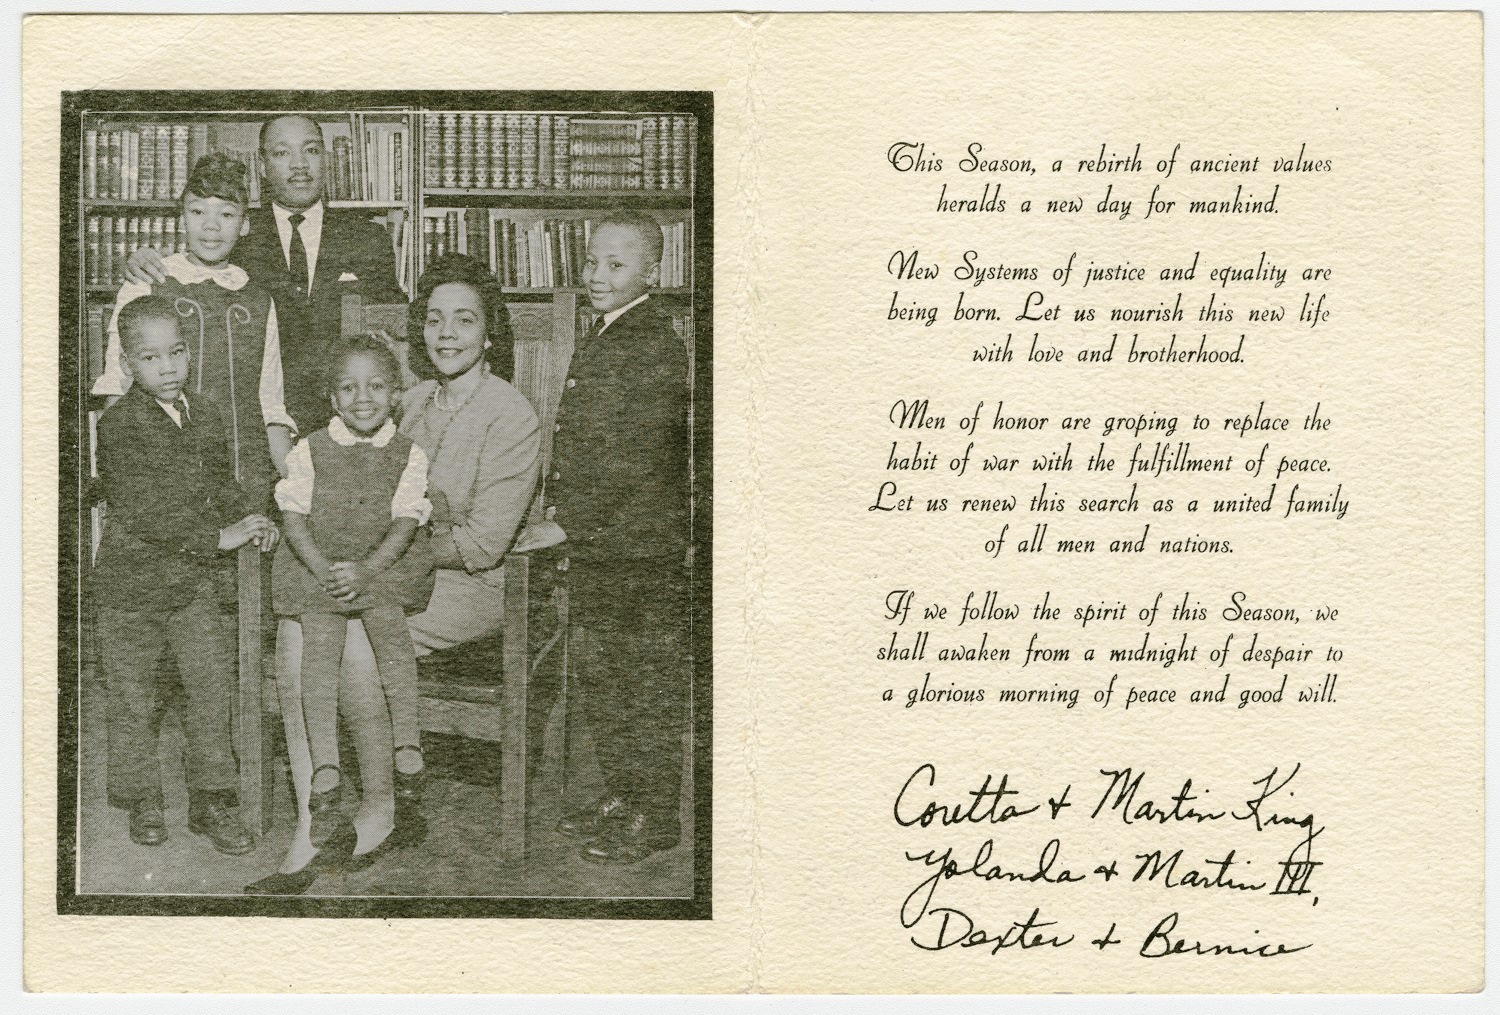 This Season, a rebirth of ancient values
heralds a new day for mankind.
New Systems of justice and equality are
being born. Let us nourish this new life
with love and brotherhood.
Men of honor are groping to replace the
habit of war with the fulfillment of peace.
Let us renew this search as a united family
of all men and nations.
If we follow the spirit of this Season, we
shall awaken from a midnight of despair to
a glorious morning of peace and good will.
Coretta & Martin King
Yolanda & Martin III,
Dexter & Bernice